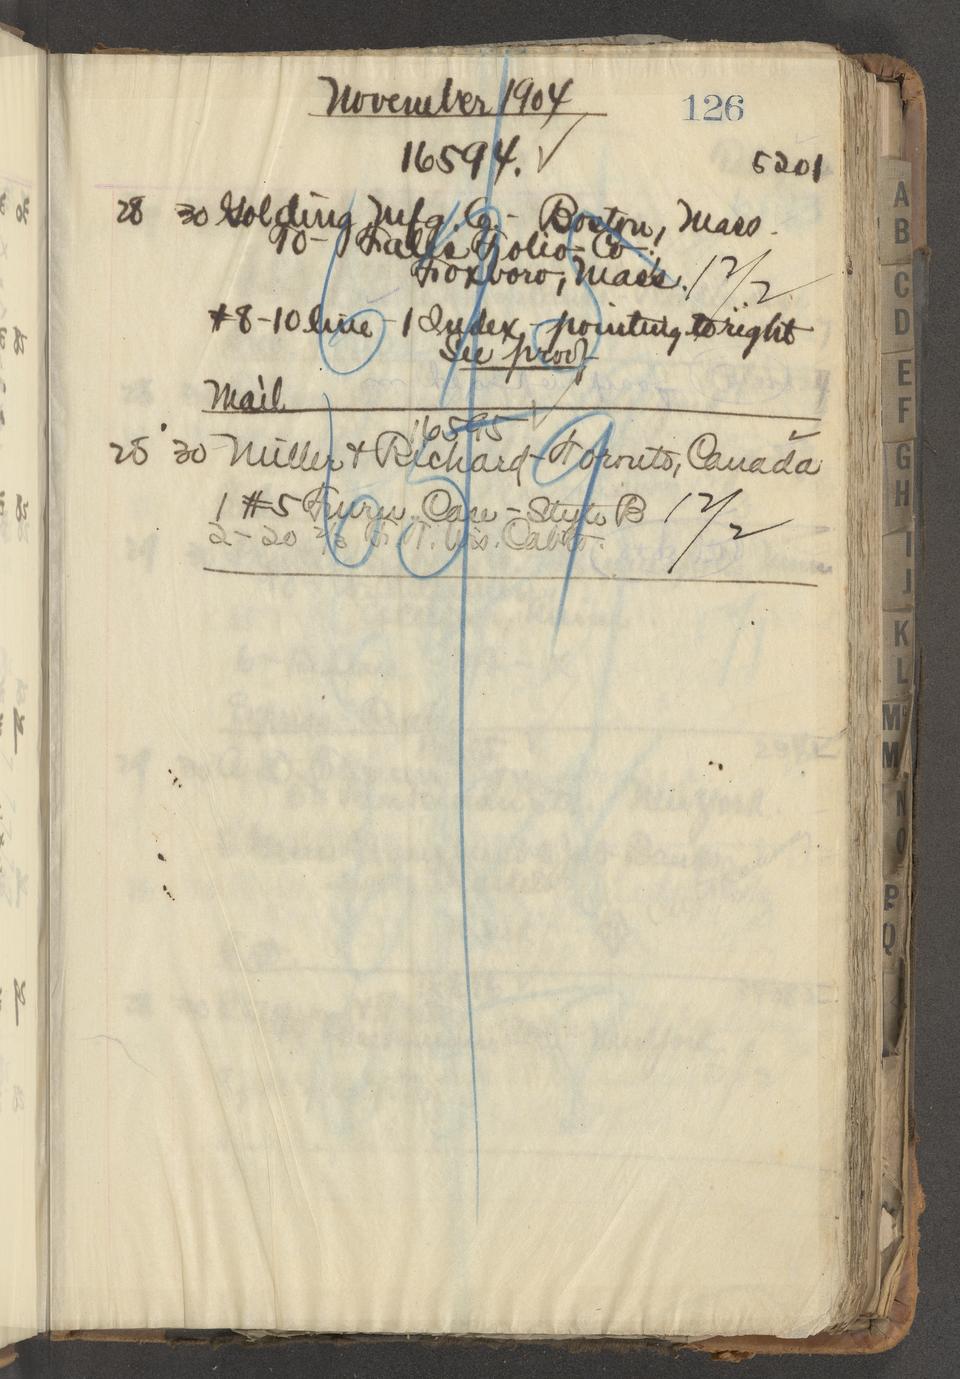 November 1904
126
16594. ✓
5201
28 30 Golding Mfg. Co. - Boston, Mass.
To - Falls Folio Co.
Foxboro, Mass. 12/2
#8-10 line - 1 Index - pointing to right
See proof
Mail
16595 ✓
28 30 Miller & Richard - Toronto, Canada
1 #5 Case - Style B 12/2
2 - 20 2/3
A
B
C
D
E
F
G
H
I
J
K
L
M
M
N
O
P
Q